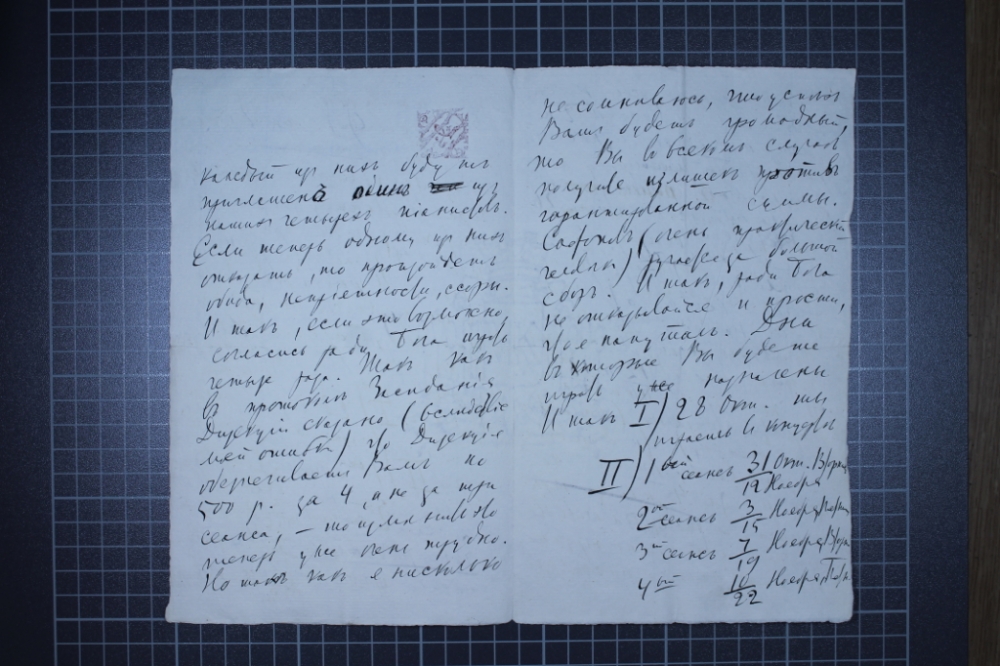 каждый изъ нихъ будутъ
приглашенъ одинъ изъ
нашихъ четырехъ піанистовъ.
Если теперь одному изъ нихъ
отказать, то произойдетъ
обида, непріятности, ссоры.
И такъ, если это возможно,
согласись ради Бога играть
четыре раза. Такъ какъ
въ протоколѣ Засѣданія
Дирекціи сказано (вслѣдствіе
моей ошибки) что Дирекція
обезпечиваетъ Вамъ по
500 р. за 4 а не за три
сеанса, – то
теперь уже очень трудно.
Но такъ какъ я нисколько
не сомнѣваюсь, что успѣхъ
Вашъ будетъ громадный,
то Вы во всякомъ случаѣ
получите излишекъ противъ
гарантированной суммы.
Сафоновъ (очень практическій
человѣкъ) ручается за большой
сборъ. И такъ, ради Бога
не отказывайся и прости,
что я напуталъ. Дни
въ которые Вы будете
играть уже назначены
И такъ I) 28 Окт. ты
играешь въ концертѣ
II) 1ый сеансъ 31/12 Окт./Ноября
2ой сеансъ 3/15 Ноября
3й сеансъ 7/19 Ноября
4ый 10/22 Ноября